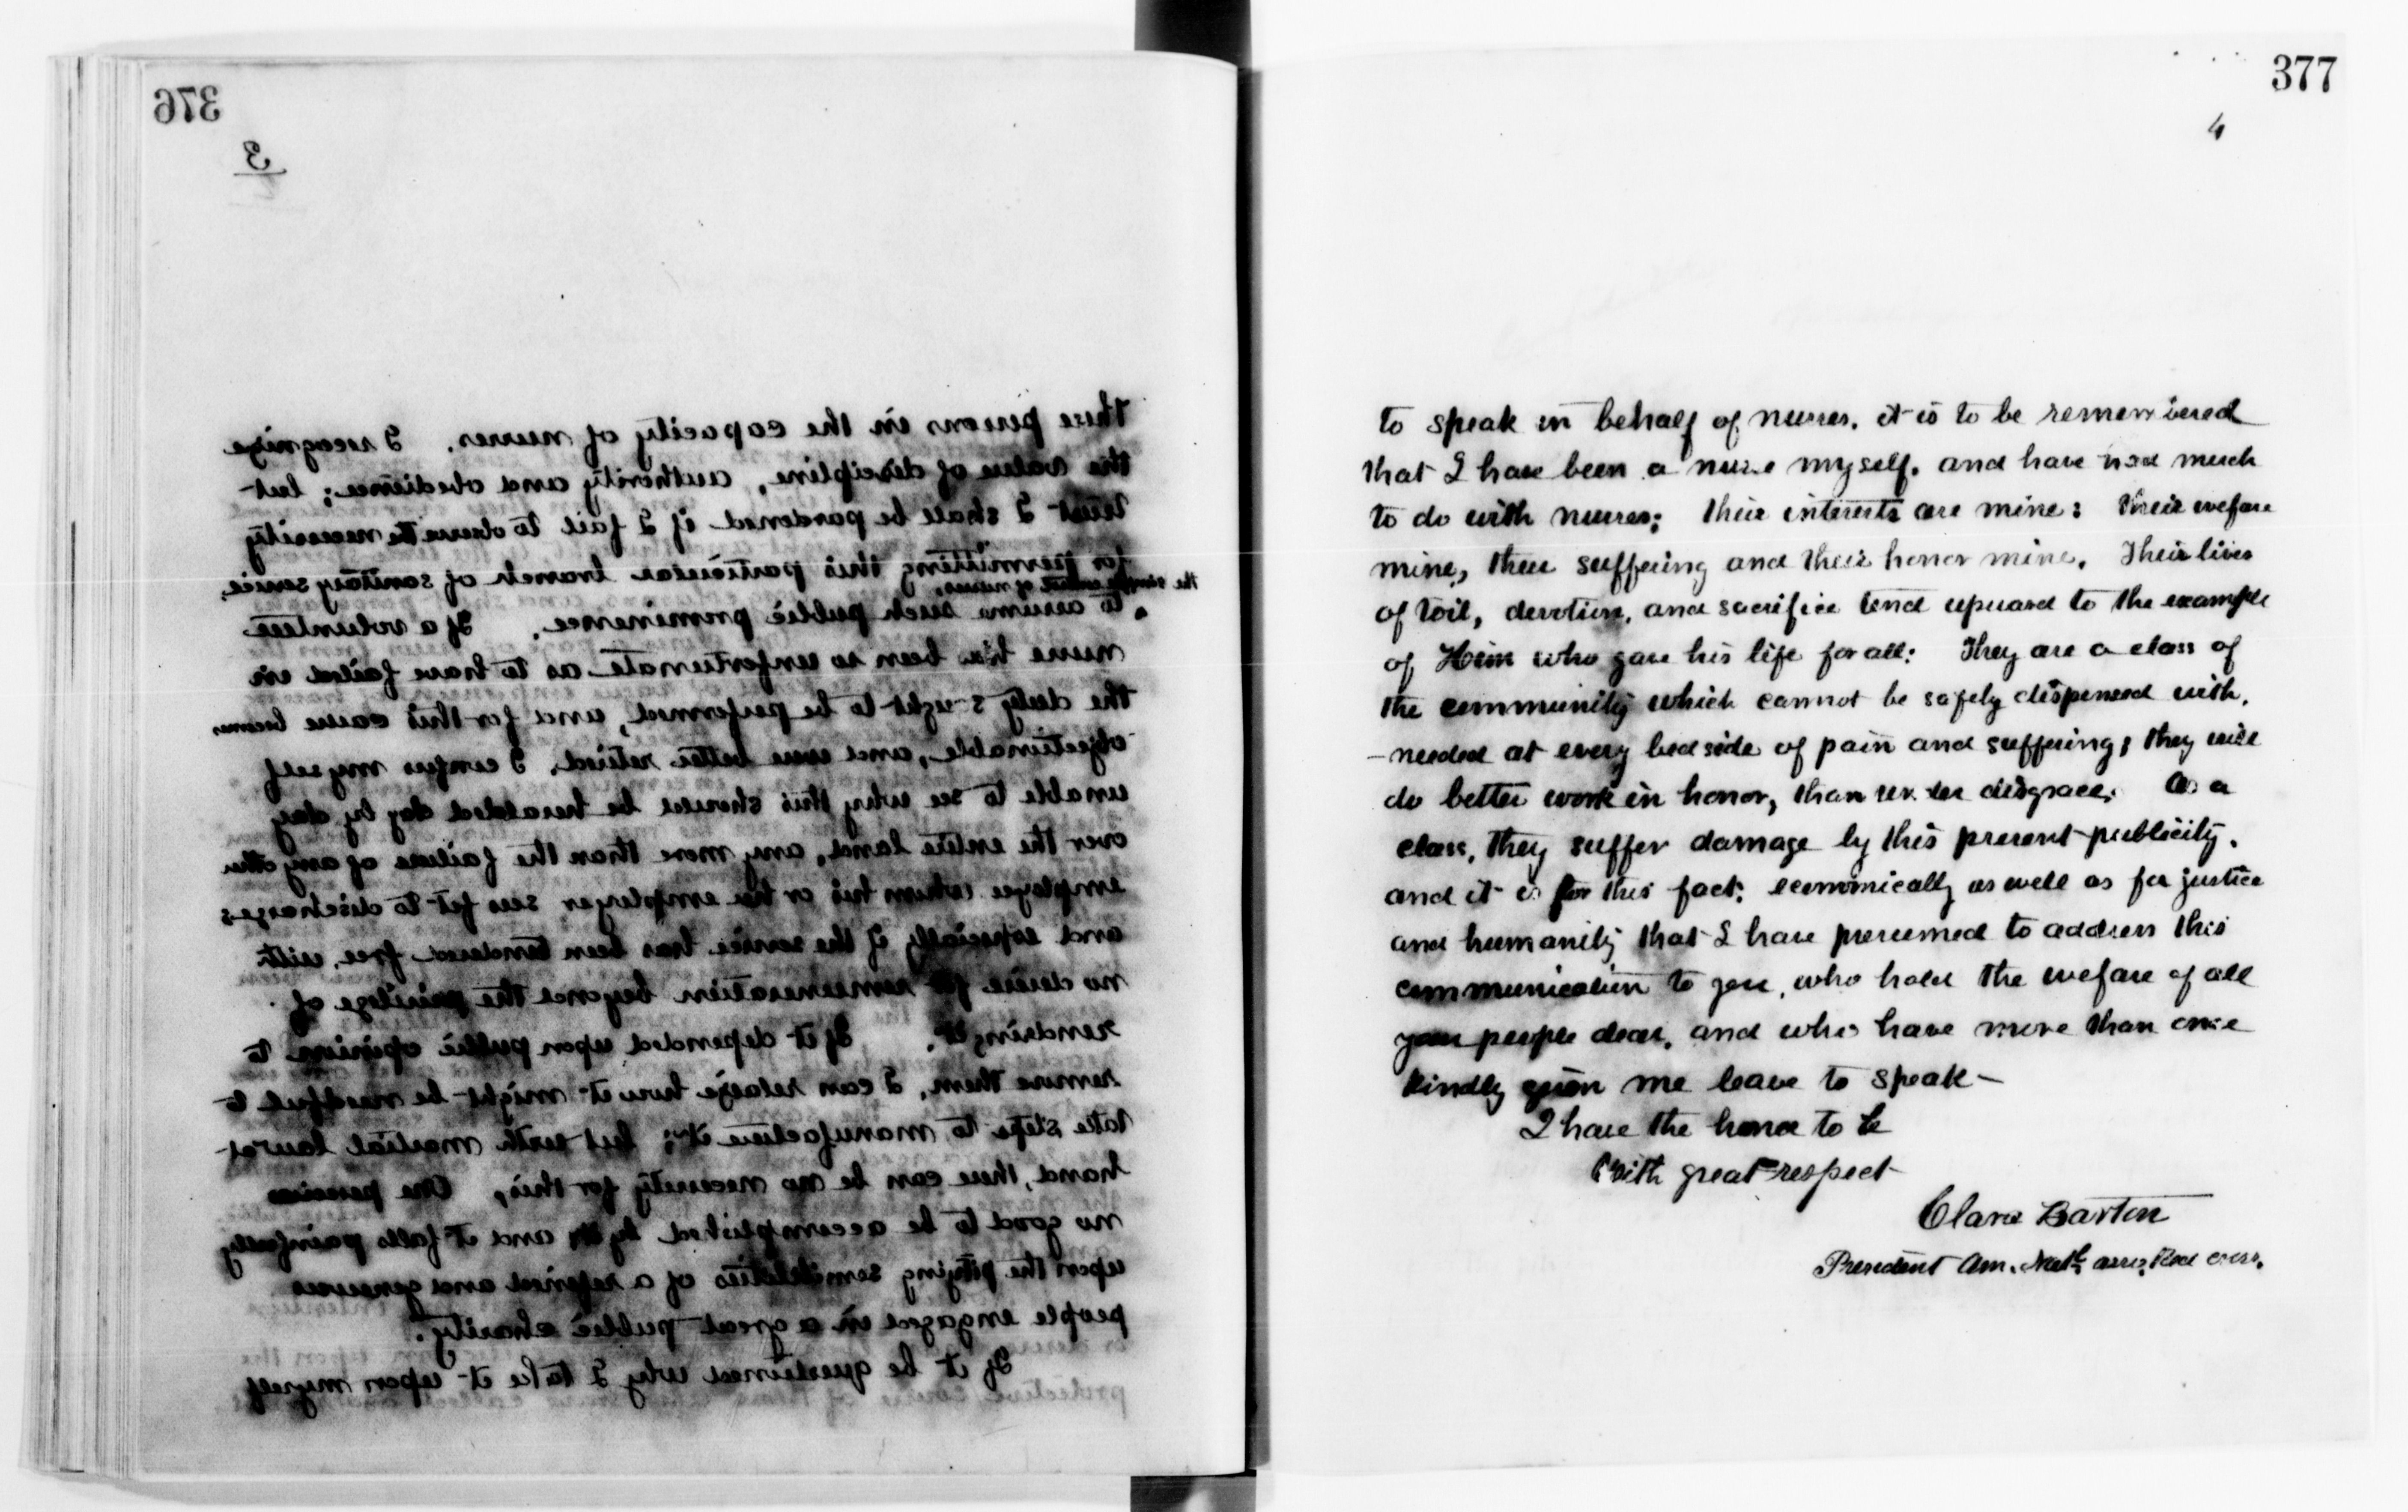 376
3
these persons in the capacity of nurses. I recognize
the value of discipline, authority and obedience; but
trust I shall be pardoned if I fail to observe the necessity
for permitting this particular branch of sanitary service,
the simple conduct of nurses,
to assume such public prominence. If a volunteer
nurse has been so unfortunate as to have failed in
the duty sought to be performed, and for this cause become
objectionable, and were better retired, I confess myself
unable to see why this should be heralded day by day
over the entire land, any more than the failure of any other
employee whom his or her employer sees fit to discharge
and especially if the service has been tendered free, with
no desire for remuneration beyond the privilege of
rendring it. If it depended upon public opinion to
remove them, I can how it might be needful to
take steps to manufacture it; but with martial law at
hand, there can be no necessity for this. One perceives
no good to be accomplished by it, and it falls painfully
upon the pitying sensibilities of a refined and generous
people engaged in a great public charity.
If it be questioned why I take it upon myself
377
4
to speak in behalf of nurses, it is to be remembered
that I have been a nurse myself, and have had much
to do with nurses; their interests are mine: their welfare
mine, their suffering and their honor mine. Their lives
of toil, devotion, and sacrifice tend upward to the example
of Him who gave his life for all: They are a class of
the community which cannot be safely dispensed with,
- needed at every bedside of pain and suffering; they will
do better work in honor, than under disgrace. As a
class, they suffer damage by this present publicity.
and it is for this fact; economically as well as for justice
and humanity that I have presumed to address this
communication to you, who hold the welfare of all
your people dear, and who have more than once
kindly given me leave to speak -
I have the honor to be
With great respect
Clara Barton
President Am. Natl. Asso. Red Cross.